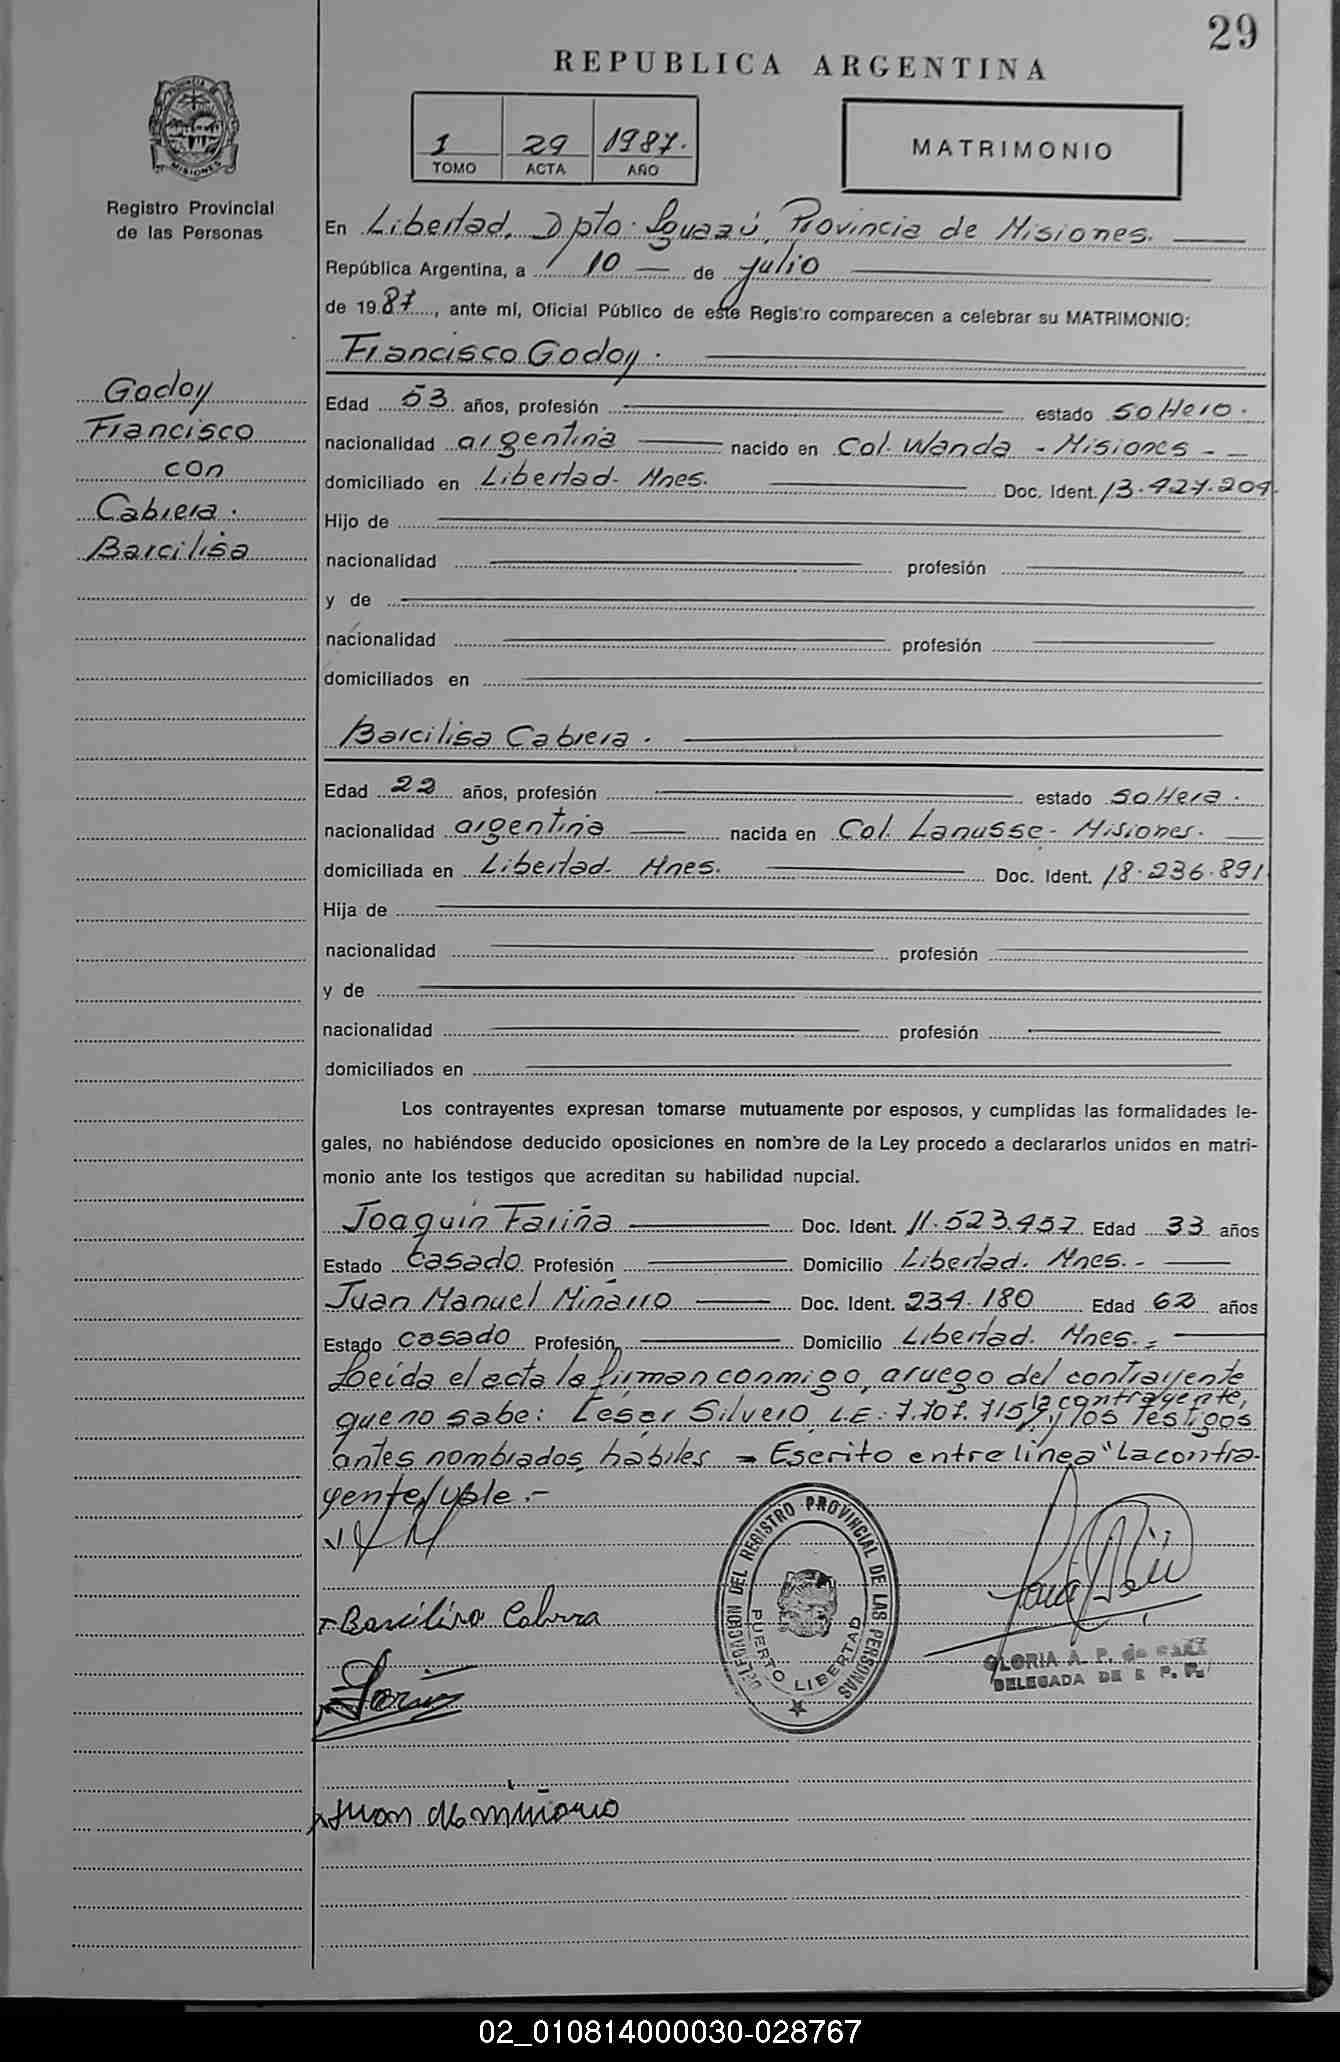 29
REPUBLICA ARGENTINA
1 29 1987.
TOMO ACTA AÑO
MATRIMONIO
PROVINCIA DE
MISIONES
Registro Provincial
de las Personas
En Libertad, Dpto. Iguazú, Provincia de Misiones.
República Argentina, a 10 de julio
de 1987, ante mí, Oficial Público de este Registro comparecen a celebrar su MATRIMONIO:
Francisco Godoy.
Godoy
Francisco
con
Cabrera.
Barcilisa
Edad 53 años, profesión estado soltero.
nacionalidad argentina nacido en Col. Wanda - Misiones -
domiciliado en Libertad. Mnes. Doc. Ident. 13.427.209.
Hijo de
nacionalidad profesión
y de
nacionalidad profesión
domiciliados en
Barcilisa Cabrera.
Edad 22 años, profesión estado soltera.
nacionalidad argentina nacida en Col. Lanusse - Misiones.
domiciliada en Libertad. Mnes. Doc. Ident. 18.236.891
Hija de
nacionalidad profesión
y de
nacionalidad profesión
domiciliados en
Los contrayentes expresan tomarse mutuamente por esposos, y cumplidas las formalidades le-
gales, no habiéndose deducido oposiciones en nombre de la Ley procedo a declararlos unidos en matri-
monio ante los testigos que acreditan su habilidad nupcial.
Joaquín Fariña Doc. Ident. 11.523.457 Edad 33 años
Estado casado Profesión Domicilio Libertad. Mnes. -
Juan Manuel Miñarro Doc. Ident. 234.180 Edad 62 años
Estado casado Profesión Domicilio Libertad. Mnes. =
Leída el acta la firman conmigo, a ruego del contrayente
la contrayente,
que no sabe: César Silvero, L.E: 7.707.715, y los Testigos
antes nombrados, hábiles = Escrito entre línea "La contra-
yente, vale.-
Barcilisa Cabrera
Juan M Miñarro
DELEGACION DEL REGISTRO PROVINCIAL DE LAS PERSONAS
PUERTO LIBERTAD
GLORIA A. P. de
DELEGADA DE R. P. P.
02_010814000030-028767